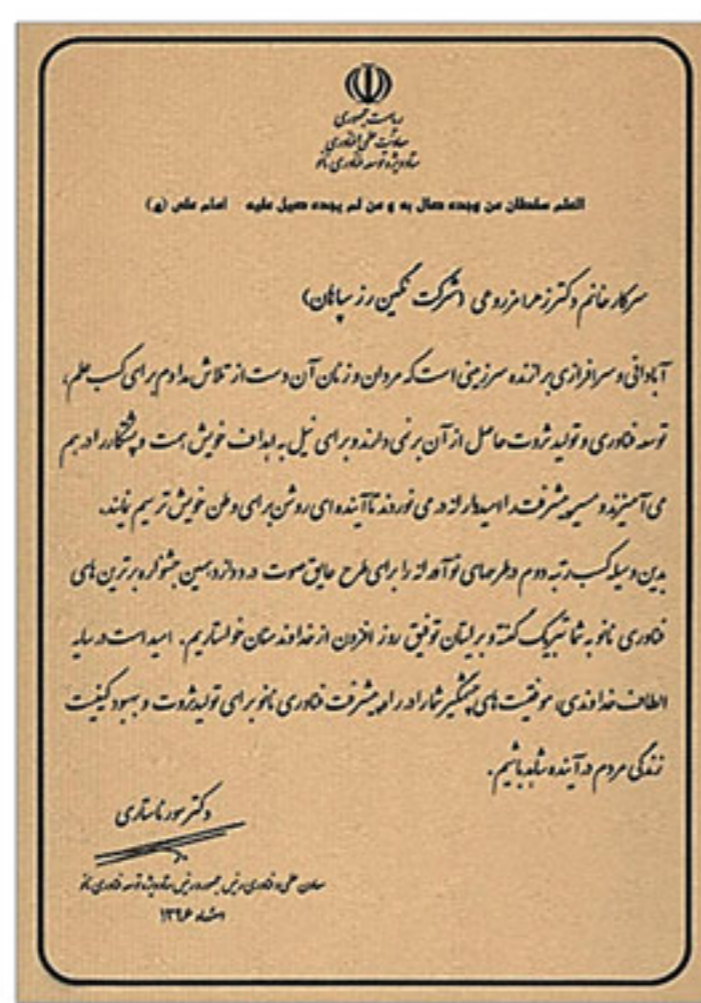 ریاست جمهوری
معاونت علمی و فناوری
ستاد ویژه توسعه فناوری نانو
العلم سلطان من وجده صال به و من لم یجده صیل علیه امام علی (ع)
سرکار خانم دکتر زهرا مزروعی (شرکت نگین رز سپاهان)
آبادانی و سرافرازی برازنده سرزمینی است که مردان و زنان آن دست از تلاش مداوم برای کسب علم،
توسعه فناوری و تولید ثروت حاصل از آن برنمی دارند و برای نیل به اهداف خویش همت و پشتکار را در هم
می آمیزند و مسیر پیشرفت را امیدوارانه در می نوردند تا آینده ای روشن برای وطن خویش ترسیم نمایند.
بدین وسیله کسب رتبه دوم طرحهای نوآورانه را برای طرح عایق صوت در دوازدهمین جشنواره برترین های
فناوری نانو به شما تبریک گفته و برایتان توفیق روز افزون از خداوند منان خواستاریم. امید است در سایه
الطاف خداوندی، موفقیت های چشمگیر شما را در راه پیشرفت فناوری نانو برای تولید ثروت و بهبود کیفیت
زندگی مردم در آینده شاهد باشیم.
دکتر سورنا ستاری
معاون علمی و فناوری رئیس جمهور و رئیس ستاد ویژه توسعه فناوری نانو
۱۳۹۶